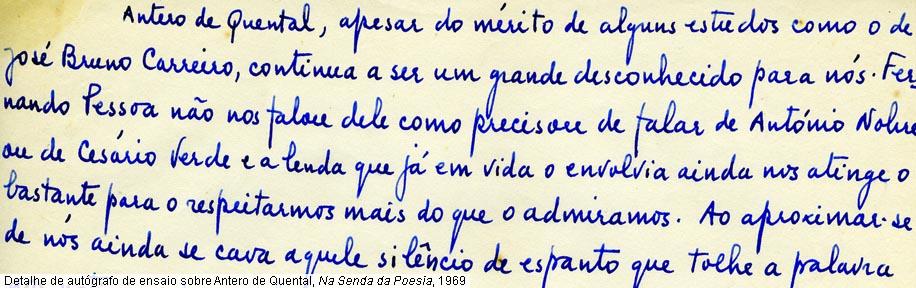 Antero de Quental, apesar do mérito de alguns estudos como o de
José Bruno Carreiro, continua a ser um grande desconhecido para nós. Fer-
nando Pessoa não nos falou dele como precisou de falar de António Nobre
ou de Cesário Verde e a lenda que já em vida o envolvia ainda nos atinge o
bastante para o respeitarmos mais do que o admiramos. Ao aproximar-se
de nós ainda se cava aquele silêncio de espanto que tolhe a palavra
Detalhe de autógrafo de ensaio sobre Antero de Quental, Na Senda da Poesia, 1969